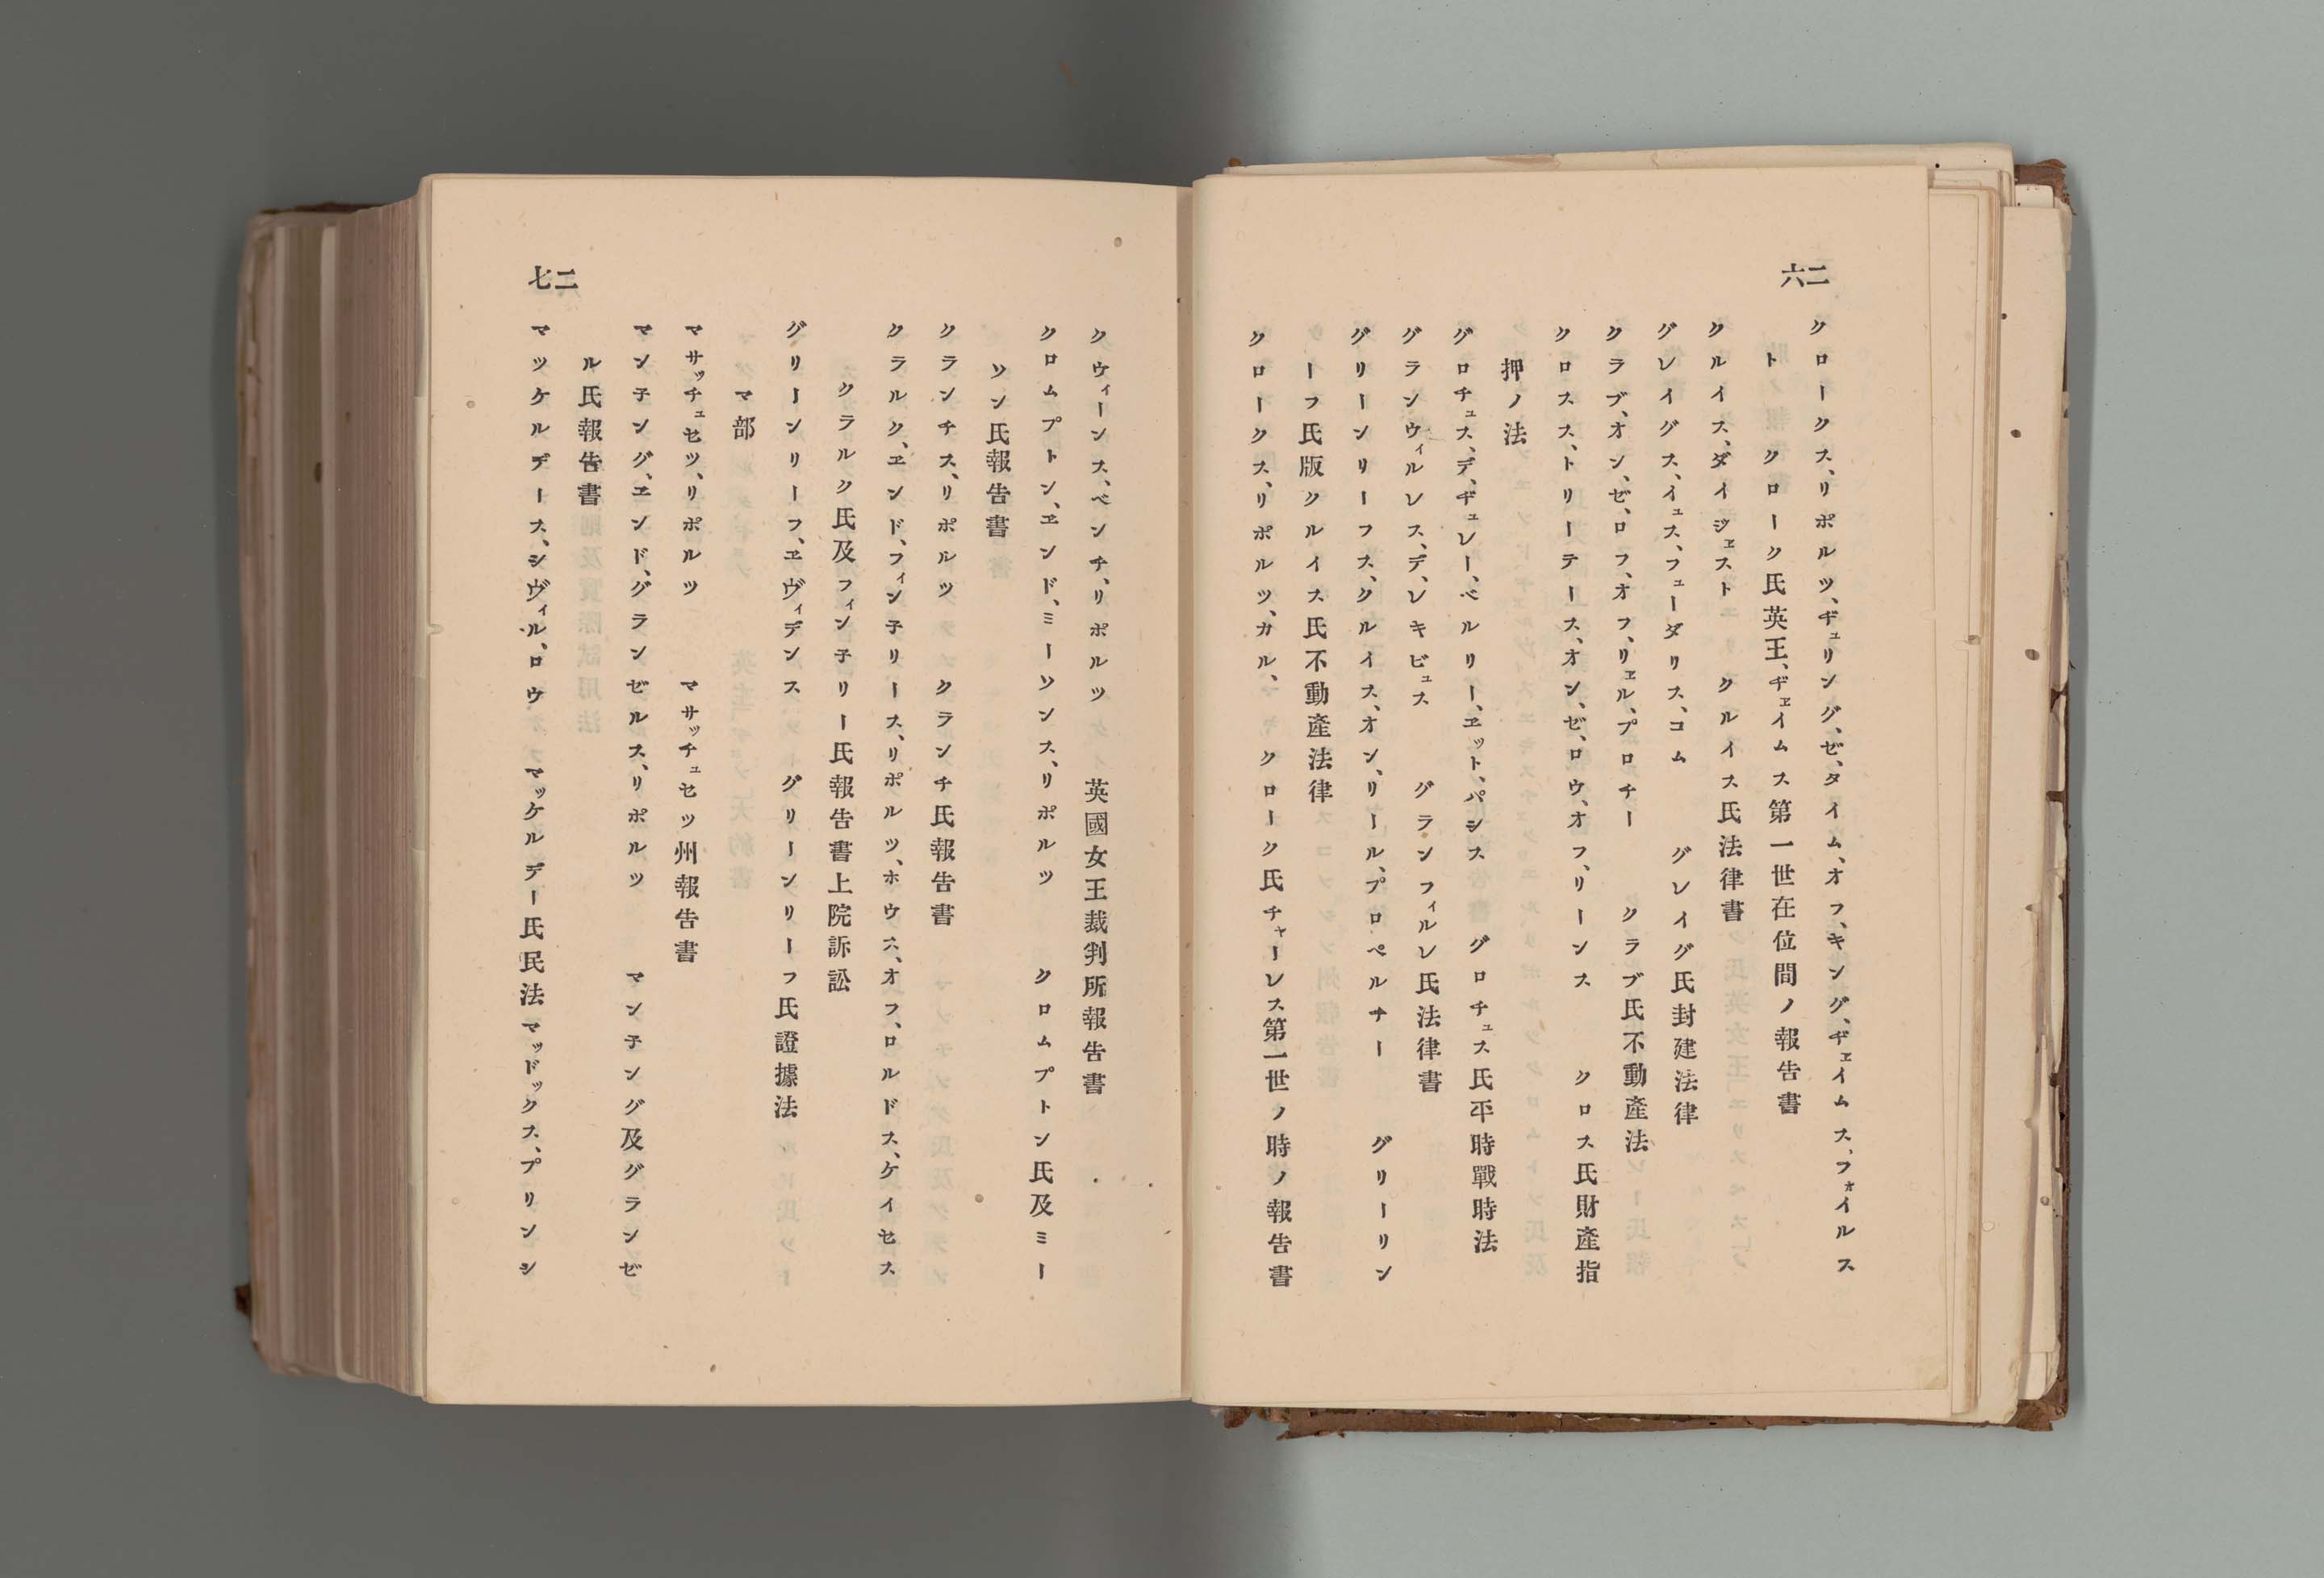 二六
クロークス、リポルツ、ヂュリング、ゼ、タイム、オフ、キング、ヂェイムス、フォイルス
ト　クローク氏英王、ヂェイムス第一世在位間ノ報告書
クルイス、ダイジェスト　クルイス氏法律書
グレイグス、イュス、フューダリス、コム　グレイグ氏封建法律
クラブ、オン、ゼ、ロフ、オフ、リェル、プロチー　クラブ氏不動產法
クロスス、トリーテース、オン、ゼ、ロウ、オフ、リーンス　クロス氏財產指
押ノ法
グロチュス、デ、ヂュレー、ベルリー、エット、パシス　グロチュス氏平時戰時法
グランウィルレス、デ、レキビュス　グランフィルレ氏法律書
グリーンリーフス、クルイス、オン、リール、プロペルチー　グリーリン
ーフ氏版クルイス氏不動產法律
クロークス、リポルツ、カル、　クローク氏チャーレス第一世ノ時ノ報告書
二七
クウィーンス、ベンチ、リポルツ　英國女王裁判所報告書
クロムプトン、エンド、ミーソンス、リポルツ　クロムプトン氏及ミー
ソン氏報告書
クランチス、リポルツ　クランチ氏報告書
クラルク、エンド、フィン子リース、リポルツ、ホウス、オフ、ロルドス、ケイセス
クラルク氏及フィン子リー氏報告書上院訴訟
グリーンリーフ、エヴィデンス　グリーンリーフ氏證據法
マ部
マサッチュセツ、リポルツ　マサッチュセツ州報告書
マン子ング、エンド、グランゼルス、リポルツ　マン子ング及グランゼ
ル氏報告書
マツケルデース、シヴィル、ロウ　マッケルデー氏民法マッドックス、プリンシ